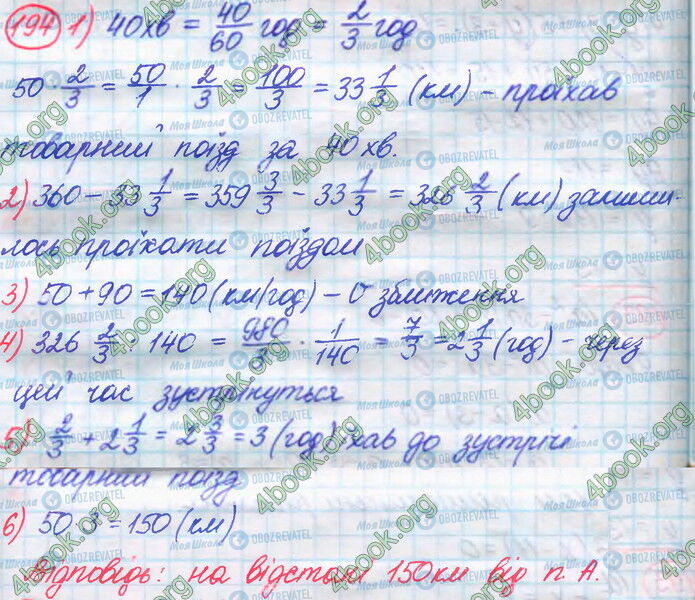 194 1) 40хв = 40/60 год = 2/3 год
50 · 2/3 = 50/1 · 2/3 = 100/3 = 33 1/3 (км) – проїхав
товарний поїзд за 40 хв.
2) 360 – 33 1/3 = 359 3/3 – 33 1/3 = 326 2/3 (км) залиши-
лось проїхати поїздом
3) 50 + 90 = 140 (км/год) – υ зближення
4) 326 2/3 : 140 = 980/3 · 1/140 = 7/3 = 2 1/3 (год) – через
цей час зустрінуться
5) 2/3 + 2 1/3 = 2 3/3 = 3 (год) їхав до зустрічі
товарний поїзд
6) 50 · 3 = 150 (км)
Відповідь: на відстані 150км від п. А.